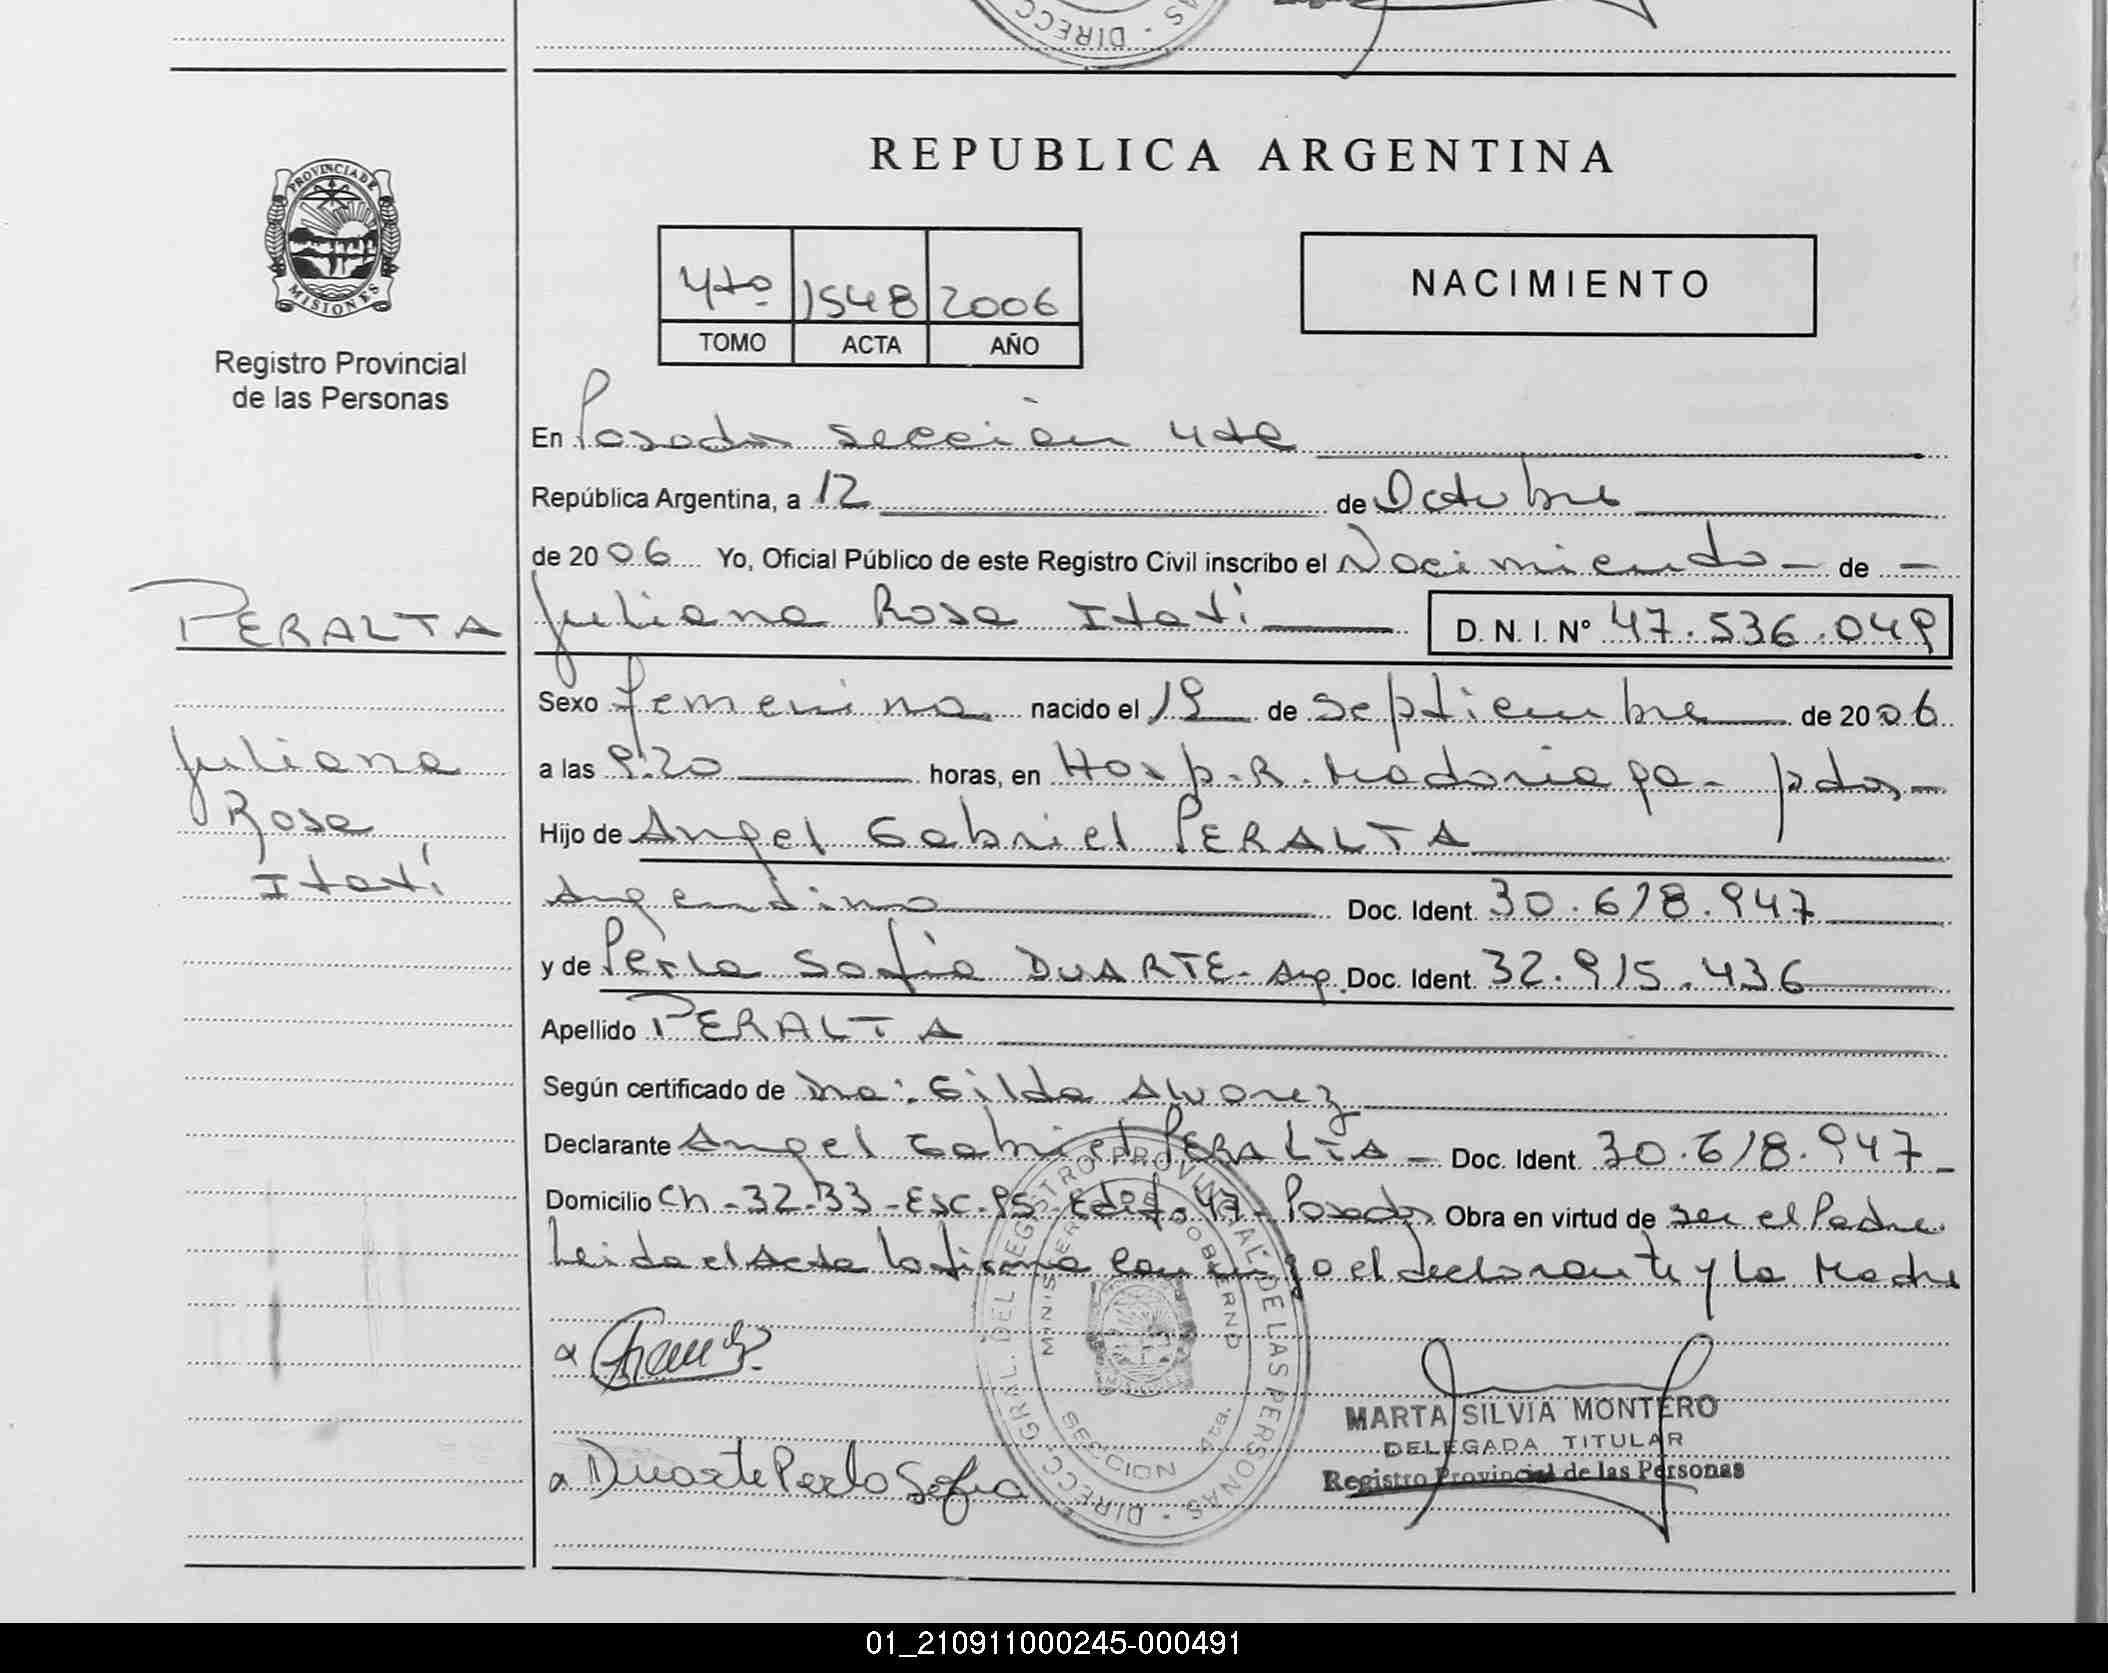 REPUBLICA ARGENTINA
PROVINCIA DE
MISIONES
Registro Provincial
de las Personas
4to 1548 2006
TOMO ACTA AÑO
NACIMIENTO
En Posadas sección 4ta
República Argentina, a 12 de Octubre
de 2006 Yo, Oficial Público de este Registro Civil inscribo el Nacimiento - de -
PERALTA
Juliana Rosa Itatí D. N. I. Nº 47.536.049
Sexo femenino nacido el 19 de septiembre de 2006
Juliana
Rosa
Itatí
a las 9.20 horas, en Hosp. R. Madariaga - pdas, -
Hijo de Angel Gabriel PERALTA
Argentino Doc. Ident. 30.618.947
y de Perla Sofia DUARTE - Arg. Doc. Ident. 32.915.436
Apellido PERALTA
Según certificado de Dra: Gilda Alvarez
Declarante Angel Gabriel PERALTA - Doc. Ident. 30.618.947 -
Domicilio Ch - 32-33 - Esc. 95 - Edif. 47 - Posadas Obra en virtud de ser el Padre
Leida el Acta la firma conmigo el declarante y la Madre
DIRECC. GRAL. DEL REGISTRO PROVINCIAL DE LAS PERSONAS
MINISTERIO DE GOBIERNO
SECCION 4ta.
MARTA SILVIA MONTERO
DELEGADA TITULAR
Registro Provincial de las Personas
a Duarte Perla Sofia
01_210911000245-000491